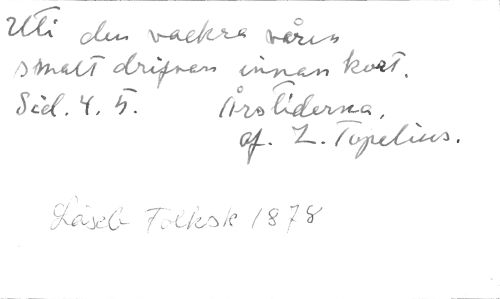 Uti den vackra våren
smalt drifvan innan kort.
Sid. 4. 5. Årstiderna.
af. Z. Topelius.
Läseb Folksk 1878